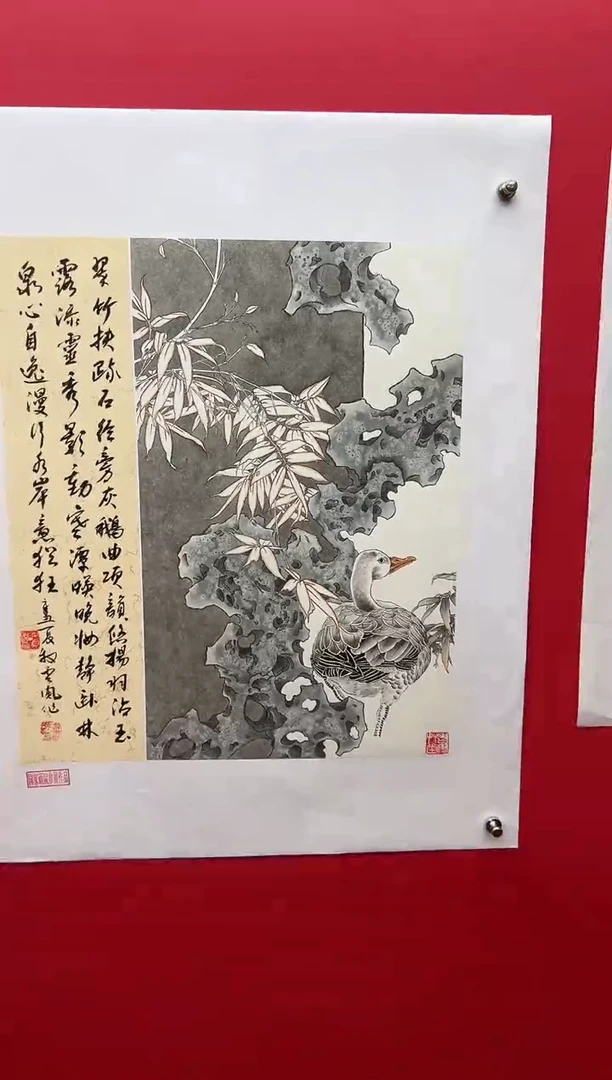 翠竹扶疏石径旁灰鹅曲项韵悠扬羽沾玉
露添灵秀影动寒潭映晚妆静卧林
泉心自逸漫行水岸意犹狂